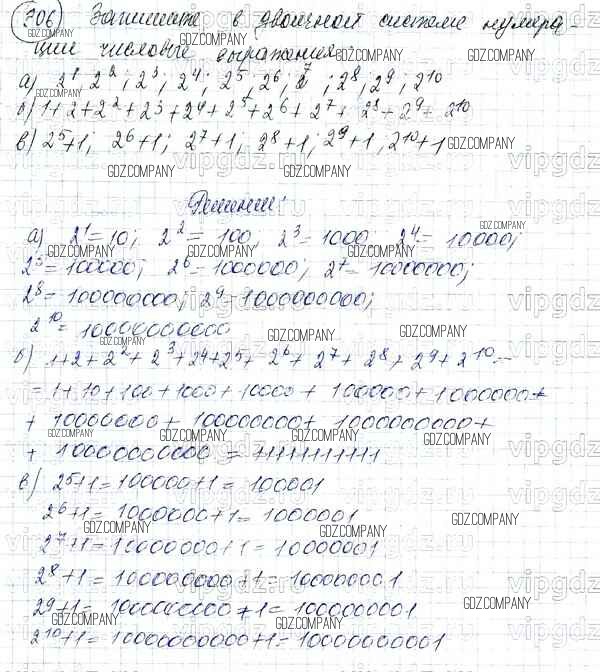 706) Запишите в двоичной системе нумера-
ции числовые выражения
а) 2¹ 2²; 2³; 2⁴; 2⁵; 2⁶; 2⁷; 2⁸; 2⁹; 2¹⁰
б) 1+2+2²+2³+2⁴+2⁵+2⁶+2⁷+2⁸+2⁹+2¹⁰
в) 2⁵+1; 2⁶+1; 2⁷+1; 2⁸+1; 2⁹+1; 2¹⁰+1
Решение:
а) 2¹=10; 2²=100, 2³=1000, 2⁴=10000;
2⁵=100000; 2⁶=1000000; 2⁷=10000000;
2⁸=100000000; 2⁹=1000000000;
2¹⁰=10000000000
б) 1+2+2²+2³+2⁴+2⁵+2⁶+2⁷+2⁸+2⁹+2¹⁰=
=1+10+100+1000+10000+100000+1000000+
+10000000+100000000+1000000000+
+10000000000=11111111111
в) 2⁵+1=100000+1=100001
2⁶+1=1000000+1=1000001
2⁷+1=10000000+1=10000001
2⁸+1=100000000+1=100000001
2⁹+1=1000000000+1=1000000001
2¹⁰+1=10000000000+1=10000000001
GDZ.COMPANY
vipgdz.ru